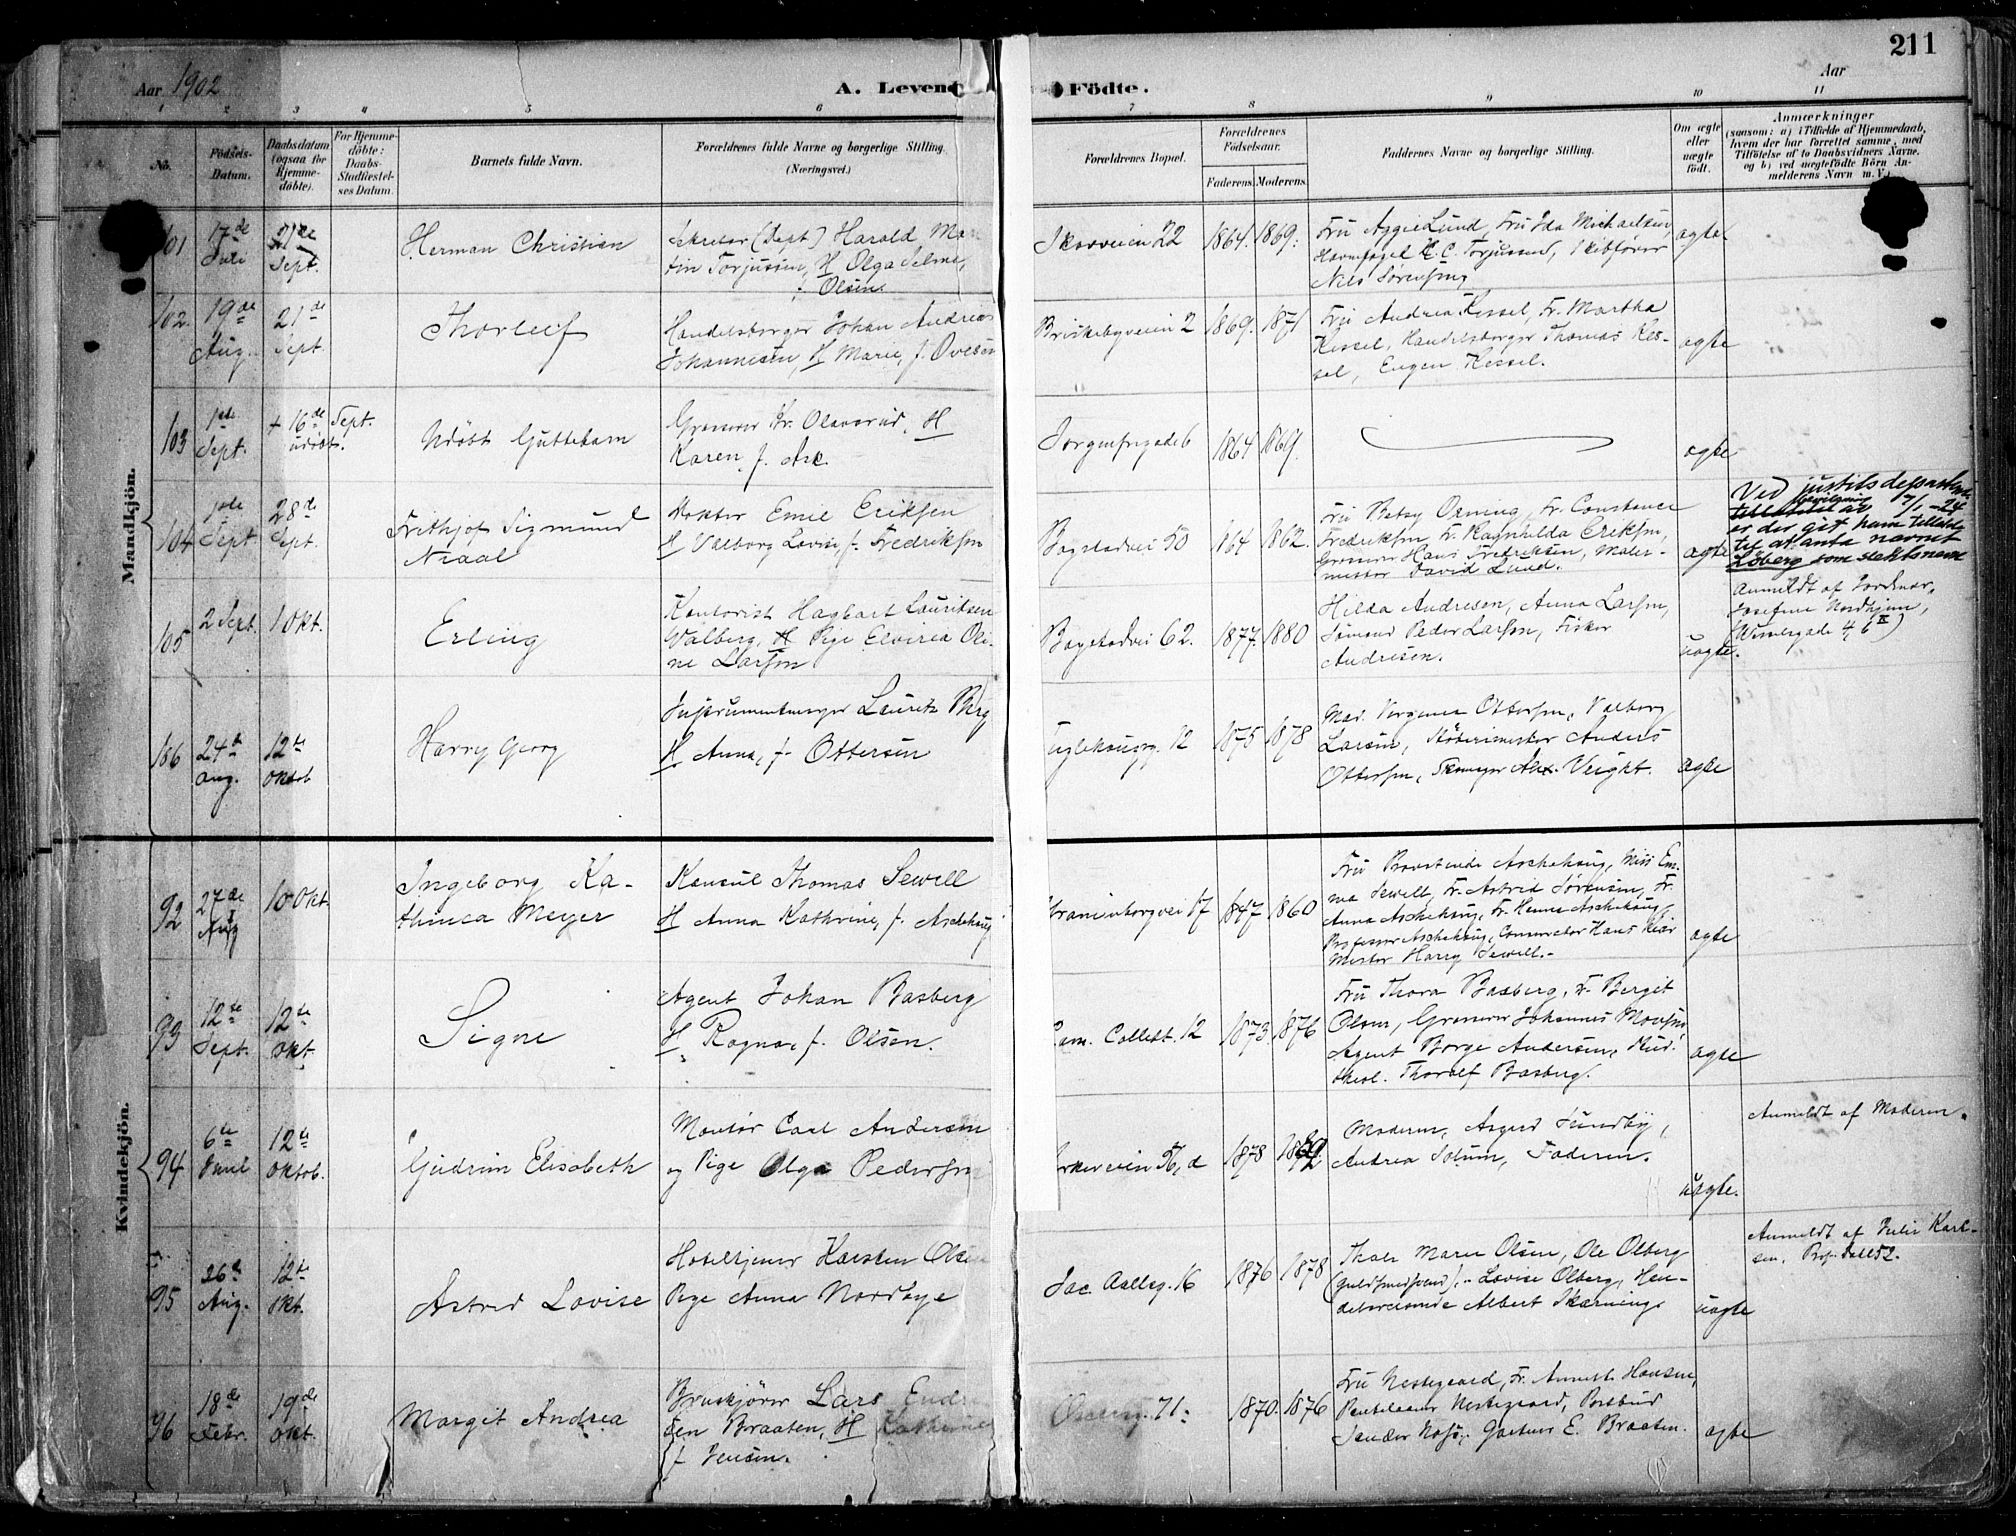 211
Aar 1902
A. Leven
Födte.
Aar
1 2 3 4 5 6 7 8 9 10 11
No.
Födsels-
Datum.
Daabsdatum
(ogsaa for
Hjemme-
döbte).
For Hjemme-
döbte:
Daabs-
Stadfæstel-
ses Datum.
Barnets fulde Navn.
Forældrenes fulde Navne og borgerlige Stilling.
(Næringsvei.)
Forældrenes Bopæl.
Forældrenes
Fødselsaar.
Faderens. Moderens.
Faddernes Navne og borgerlige Stilling.
Om ægte
eller
uægte
födt.
Anmærkninger
(saasom: a) i Tilfælde af Hjemmedaab,
hvem der har forrettet samme, med
Tilföielse af to Daabsvidners Navne.
og b) ved uægtefödte Börn An-
melderens Navn m. V.)
Mandkjön.
101
17de
Juli
21de
Sept.
Herman Christian
Sekretær (Dept) Harald Mar
tin Torjussen, H Olga Selma,
f. Olsen.
Skovveien 22
1864. 1869.
Fru Aggie Lund, Fru Ida Michaelsen
Havnefoged C. C. Torjussen, Skibsfører
Nils Sørensen
ægte.
102.
19de
Aug.
21de
Sept.
Thorleif
Handelsborger Johan Andreas
Johannesen, H Marie, f. Ovesen
Briskebyveien 2
1869. 1871
Fru Andrea Kessel, Fr. Martha
Kessel, Handelsborger Thomas Kes-
sel, Eugen Kessel.
ægte
103
1ste
Sept.
+ 16de Sept.
udøbt.
Udøbt Guttebarn
Grosserer Kr. Olavsrud, H
Karen f. Ask
Sorgenfrigade 6
1864 1869.
ægte
104
1ste
Sept.
28de
Sept.
Frithjof Sigmund
Neaal
Doktor Emil Eriksen
H Valborg Lovise f. Fredriksen
Bogstadvei 50
1864 1862.
Fru Betsy Orning, Fr. Constance
Fredriksen Fr. Ragnhilda Eriksen,
Grosserer Hans Fredriksen, Maler-
mester David Lund.
ægte
Ved justitsdepartem.
bevilgning 17/1-24
er der git ham tilladelse
til at anta navnet
Løberg som slektsnavn
105
2 Sept.
1 Okt.
Erling
Kontorist Hagbart Lauritsen
Valberg, Pige Elvirea Oli-
ne Larsen
Bogstadvei 62.
1877. 1880
Hilda Andresen, Anna Larsen,
Sømand Peder Larsen, Fisker
Andresen.
uægte.
Anmeldt af Jordmor
Josefine Nordhjem,
(Wesselsgade 4, 6 II)
106
24de
Aug.
12te
Oktob
Harry Georg
Instrumentmager Lauritz Berg
H Anna, f. Ottersen
Uglehaugsg. 12
1875 1878
Mad. Vergenia Ottersen, Valborg
Larsen, Støberimester Anders
Ottersen, Skomager Alex. Veight.
ægte
Kvindekjön.
92
27de
Aug
10 Okt.
Ingeborg Ka-
thinca Meyer
Konsul Thomas Sewell
H Anna Kathrine, f. Aschehoug
ranienborgvei 17
1847 1860
Fru Provstinde Aschehoug, Miss Em-
ma Sewell, Fr. Astrid Sørensen, Fr.
Anna Aschehoug, Fr. Hanna Aschehoug,
Professor Aschehoug, Conservator Hans Kiær
Mester Harry Sewell.-
ægte
93
12te
Sept.
12te
Okt.
Signe
Agent Johan Basberg
H Ragna, f. Olsen.
Cam. Collett. 12
1873 1876
Fru Thora Basberg, Fr. Bergit
Olsen, Grosserer Johannes
Agent Borge Andersen, Stud.
Thoralf Basberg.
ægte
94
6te
12te
Oktob.
Gudrun Elisabeth
Montør Carl Andersen
og Pige Olga Pedersen
irkeveien 56, d
1878
Moderen, Asgerd Sundby,
Andrea Solum, Faderen.
uægte.
Anmeldt af Moderen.
95
26de
Aug.
12te
Okt.
Astrid Lovise
Hotelltjener Karsten Olsen
Pige Anna Nordbye
Jac. Aallsg. 16
1876 1878
Thale Marie Olsen, Ole Olberg
(guldsmedsvend), Lovise Olberg, Han-
delsreisende Albert Skarning.
uægte
Anmeldt af Julie Karl-
sen, Prof. Dalls 52.
96
18de
Febr.
19de
Okt.
Margit Andrea
Bruskjører Lars Endre
sen Braaten, H Kathrine
f. Jensen.
71.
1870. 1876
Fru Nestegaard, Fr. Annette Hansen,
Nestegaard, Bisbud
Sander Nass, Gartner E. Braaten.
ægte